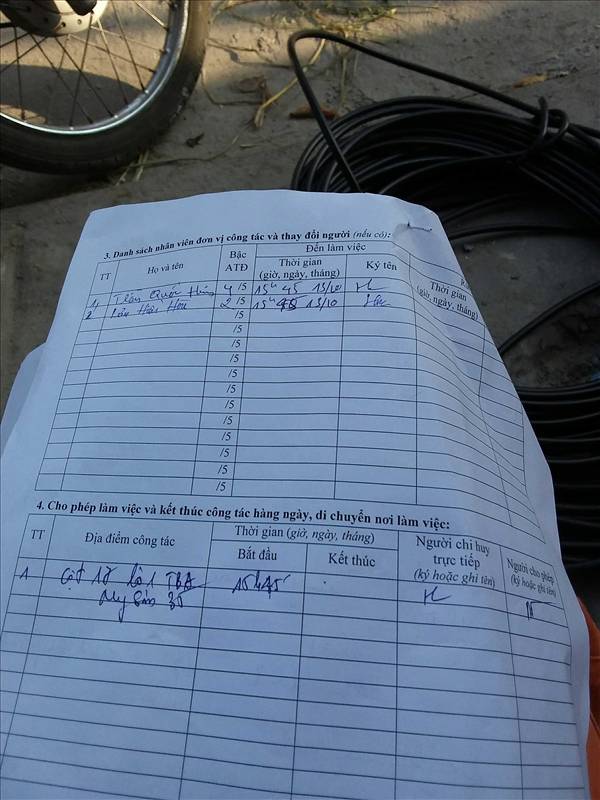 3. Danh sách nhân viên đơn vị công tác và thay đổi người (nếu có):
TT
Họ và tên
Bậc ATĐ
Đến làm việc
Thời gian (giờ, ngày, tháng)
Ký tên
Thời gian (giờ, ngày, tháng)
1 Trần Quốc 4/5 15h45 13/10
2 2/5 15h45 13/10
/5
/5
/5
/5
/5
/5
/5
/5
/5
/5
/5
/5
4. Cho phép làm việc và kết thúc công tác hàng ngày, di chuyển nơi làm việc:
TT
Địa điểm công tác
Thời gian (giờ, ngày, tháng)
Bắt đầu
Kết thúc
Người chỉ huy trực tiếp (ký hoặc ghi tên)
Người cho phép (ký hoặc ghi tên)
1 Cột 18 lộ 1 TBA 15h45
35